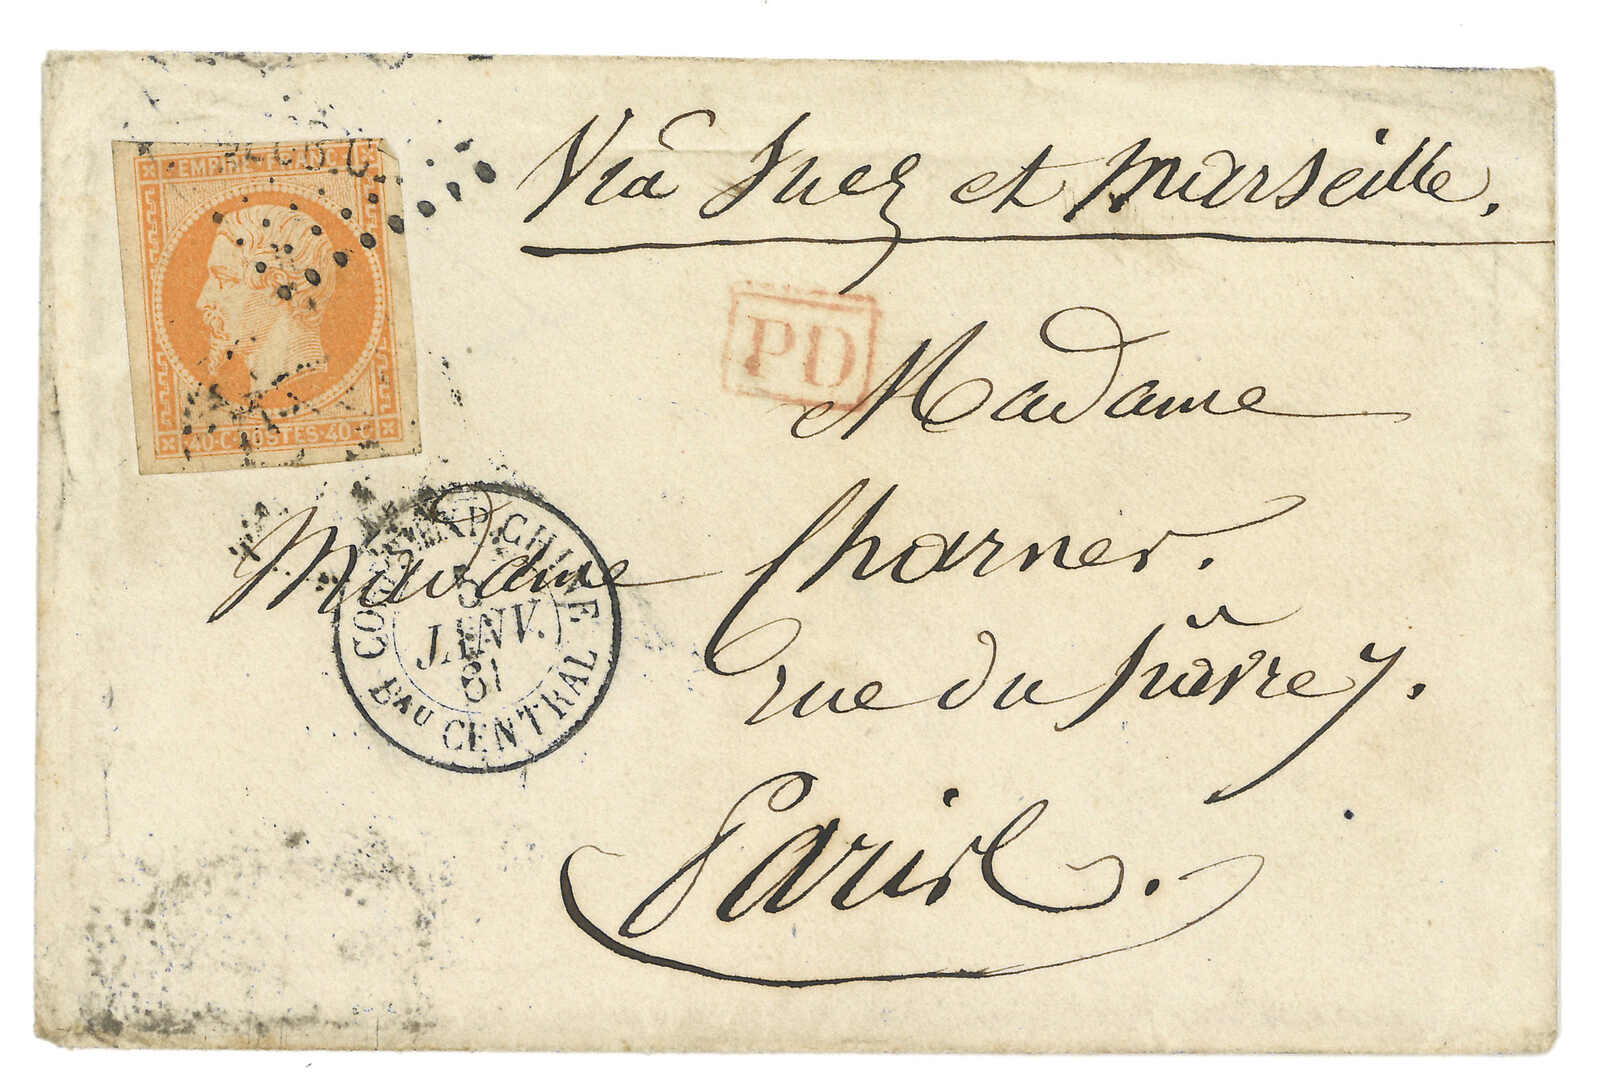 Viâ Suez et Marseille.
EMPIRE FRANC
40·C·POSTES·40·C
PD
Madame
Madame Charner.
rue du
Paris.
CORPS EXP. CHINE
5
JANV.
61
BAU CENTRAL